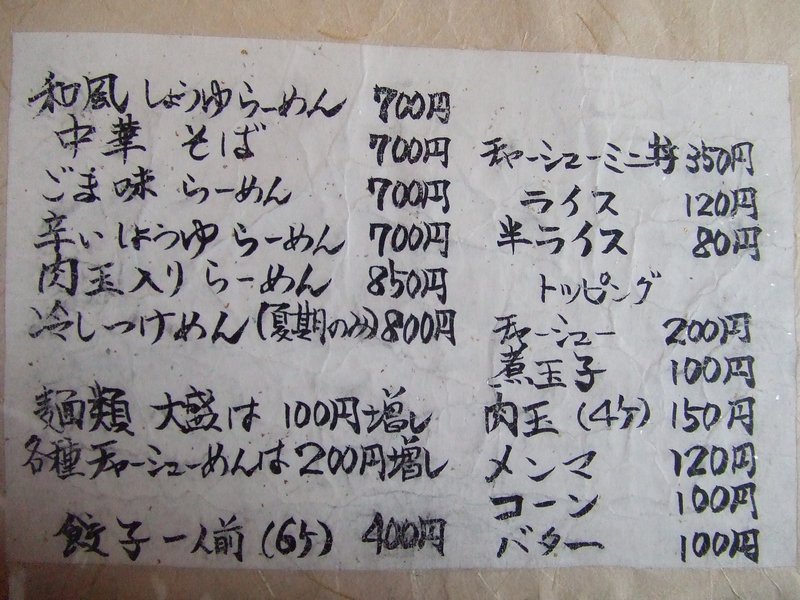 和風しょうゆらーめん 700円
中華そば 700円
ごま味らーめん 700円
辛いしょうゆらーめん 700円
肉玉入りらーめん 850円
冷しつけめん(夏期のみ)800円
麺類 大盛は 100円増し
各種チャーシューめんは200円増し
餃子一人前(6ケ) 400円
チャーシューミニ丼 350円
ライス 120円
半ライス 80円
トッピング
チャーシュー 200円
煮玉子 100円
肉玉(4ケ)150円
メンマ 120円
コーン 100円
バター 100円